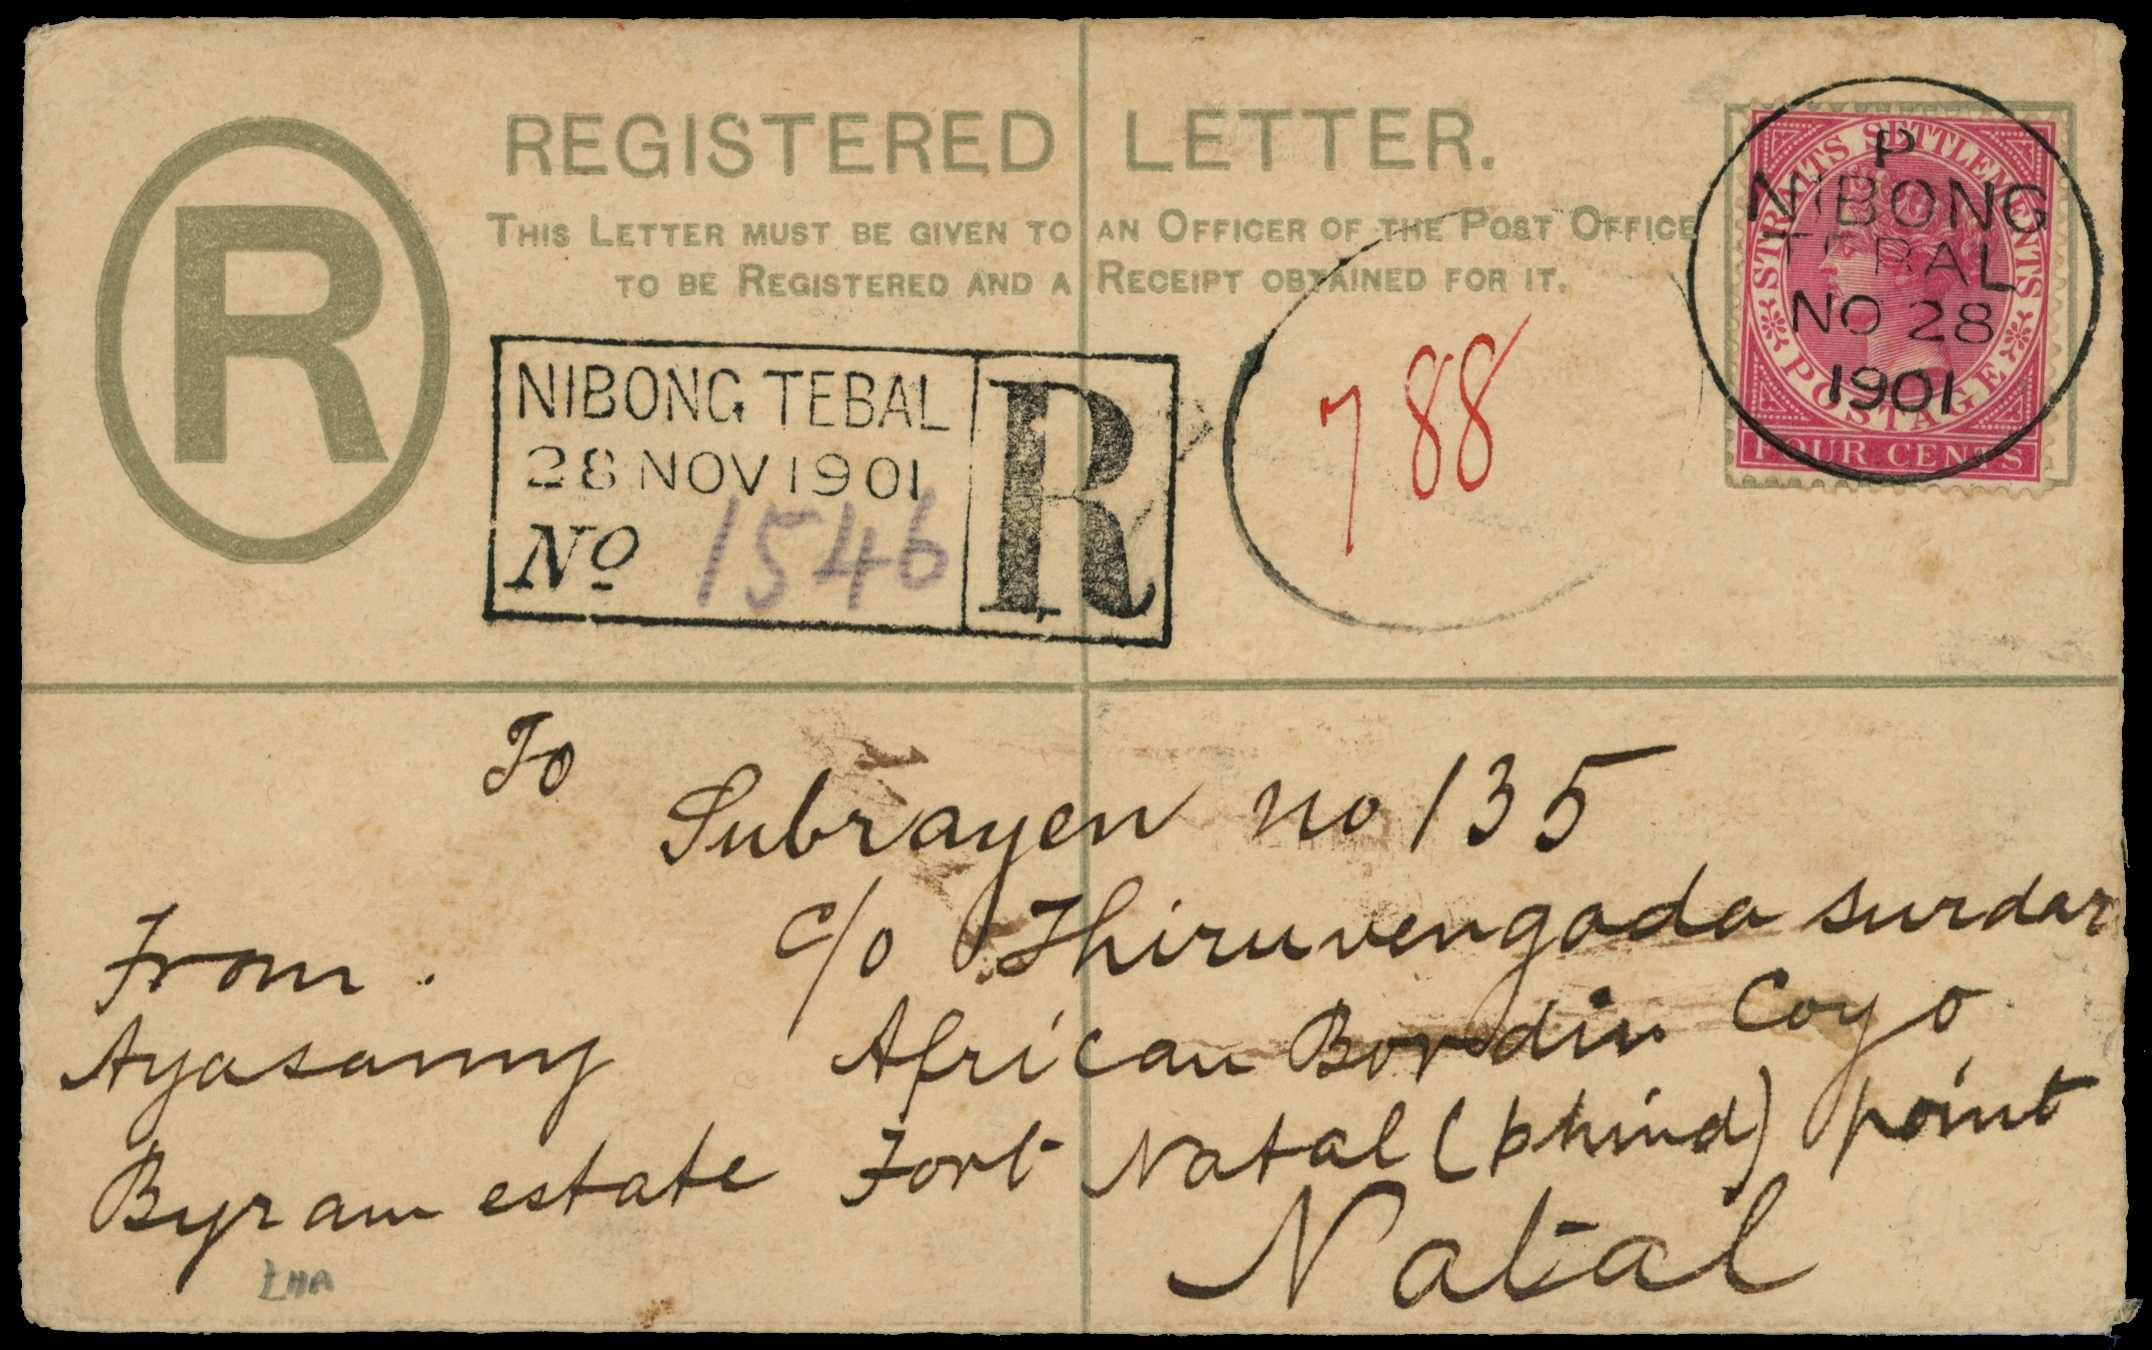 REGISTERED LETTER.
THIS LETTER MUST BE GIVEN TO AN OFFICER OF THE POST OFFICE
TO BE REGISTERED AND A RECEIPT OBTAINED FOR IT.
R
STRAITS SETTLEMENTS
POSTAGE
FOUR CENTS
P
NIBONG
TEBAL
NO 28
1901
NIBONG TEBAL
28 NOV 1901
No 1546
R
788
To
Subrayen no 135
c/o Thiruvengada surdar
African Bordin Coy o
Fort Natal (bhind) point
Natal
From.
Ayasamy
Byram estate